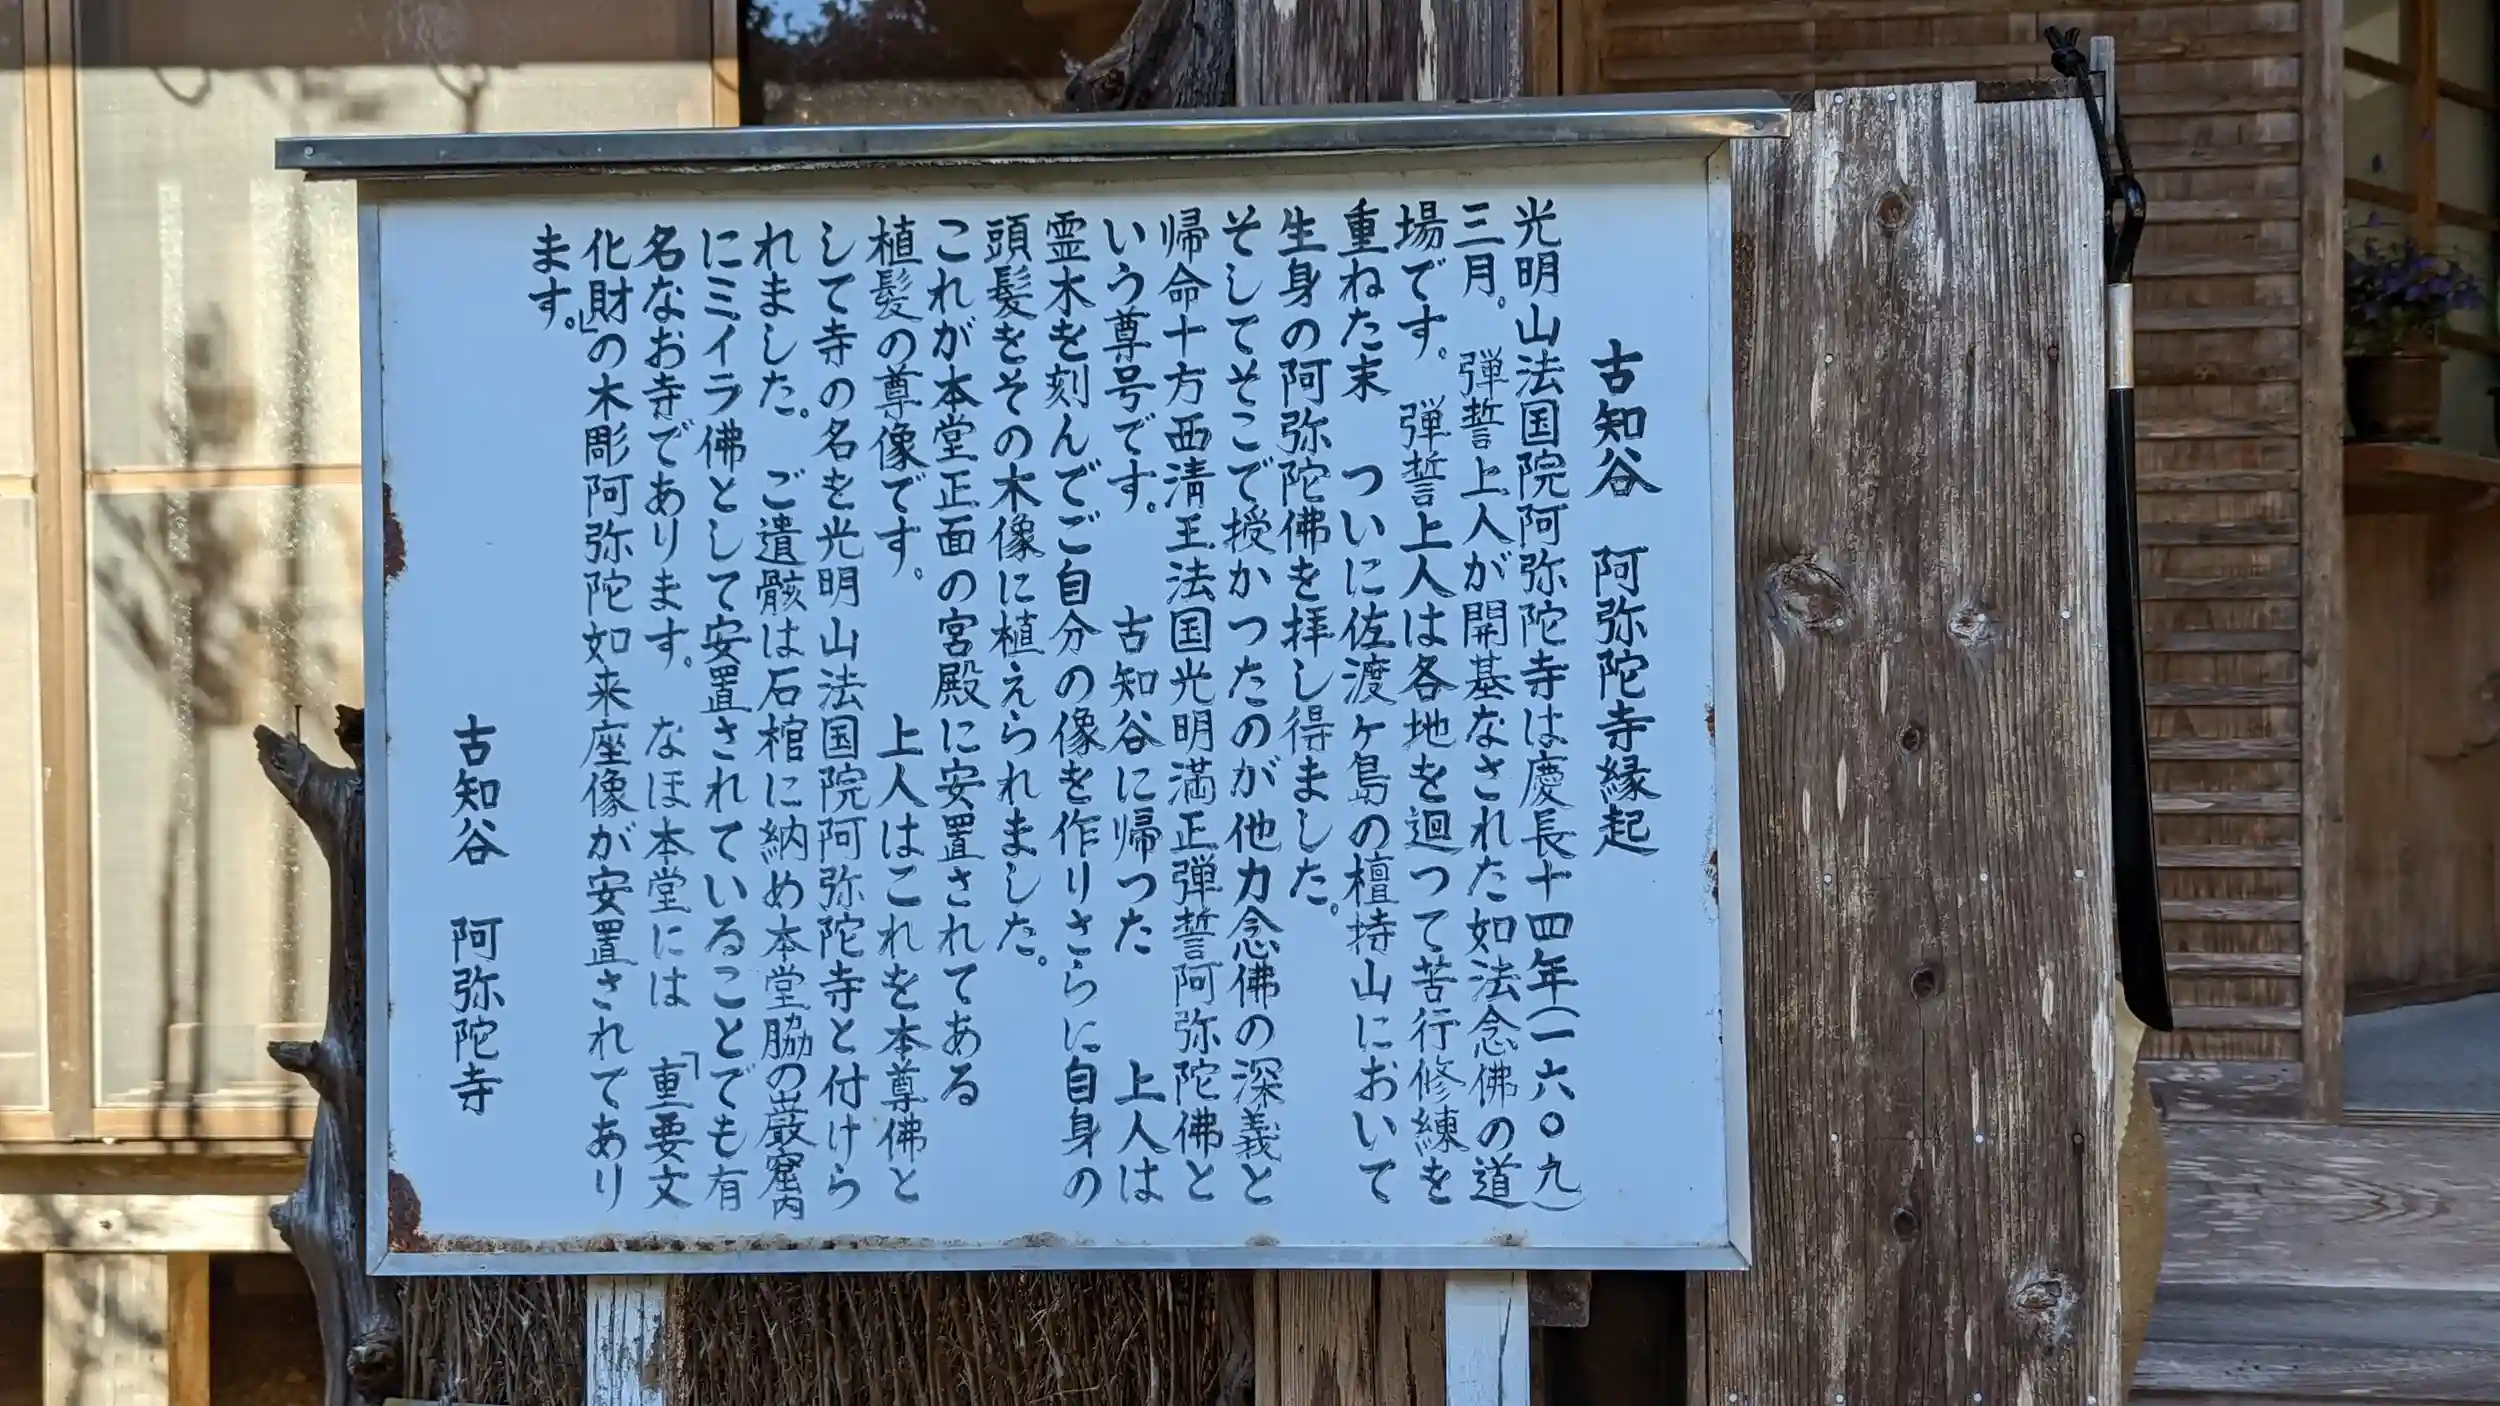 古知谷　阿弥陀寺縁起
光明山法国院阿弥陀寺は慶長十四年(一六〇九)
三月。　弾誓上人が開基なされた如法念佛の道
場です。　弾誓上人は各地を迴つて苦行修練を
重ねた末　ついに佐渡ヶ島の檀持山において
生身の阿弥陀佛を拝し得ました。
そしてそこで授かつたのが他力念佛の深義と
帰命十方西清王法国光明満正弾誓阿弥陀佛と
いう尊号です。　古知谷に帰つた　上人は
霊木を刻んでご自分の像を作りさらに自身の
頭髪をその木像に植えられました。
これが本堂正面の宮殿に安置されてある
植髪の尊像です。　上人はこれを本尊佛と
して寺の名を光明山法国院阿弥陀寺と付けら
れました。　ご遺骸は石棺に納め本堂脇の巌窟内
にミイラ佛として安置されていることでも有
名なお寺であります。　なほ本堂には　「重要文
化財」の木彫阿弥陀如来座像が安置されてあり
ます。
古知谷　阿弥陀寺